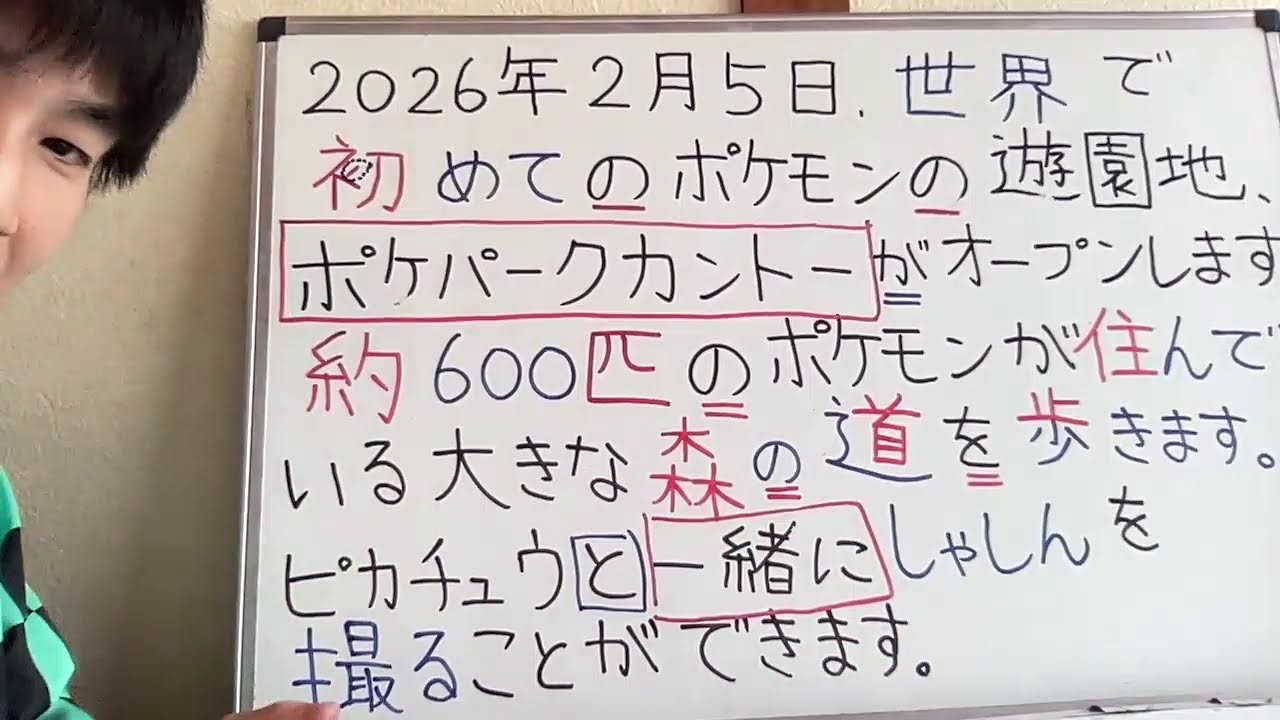 2026年2月5日.世界で
初めてのポケモンの遊園地、
ポケパークカントーがオープンします
約600匹のポケモンが住んで
いる大きな森の道を歩きます。
ピカチュウと一緒にしゃしんを
撮ることができます。